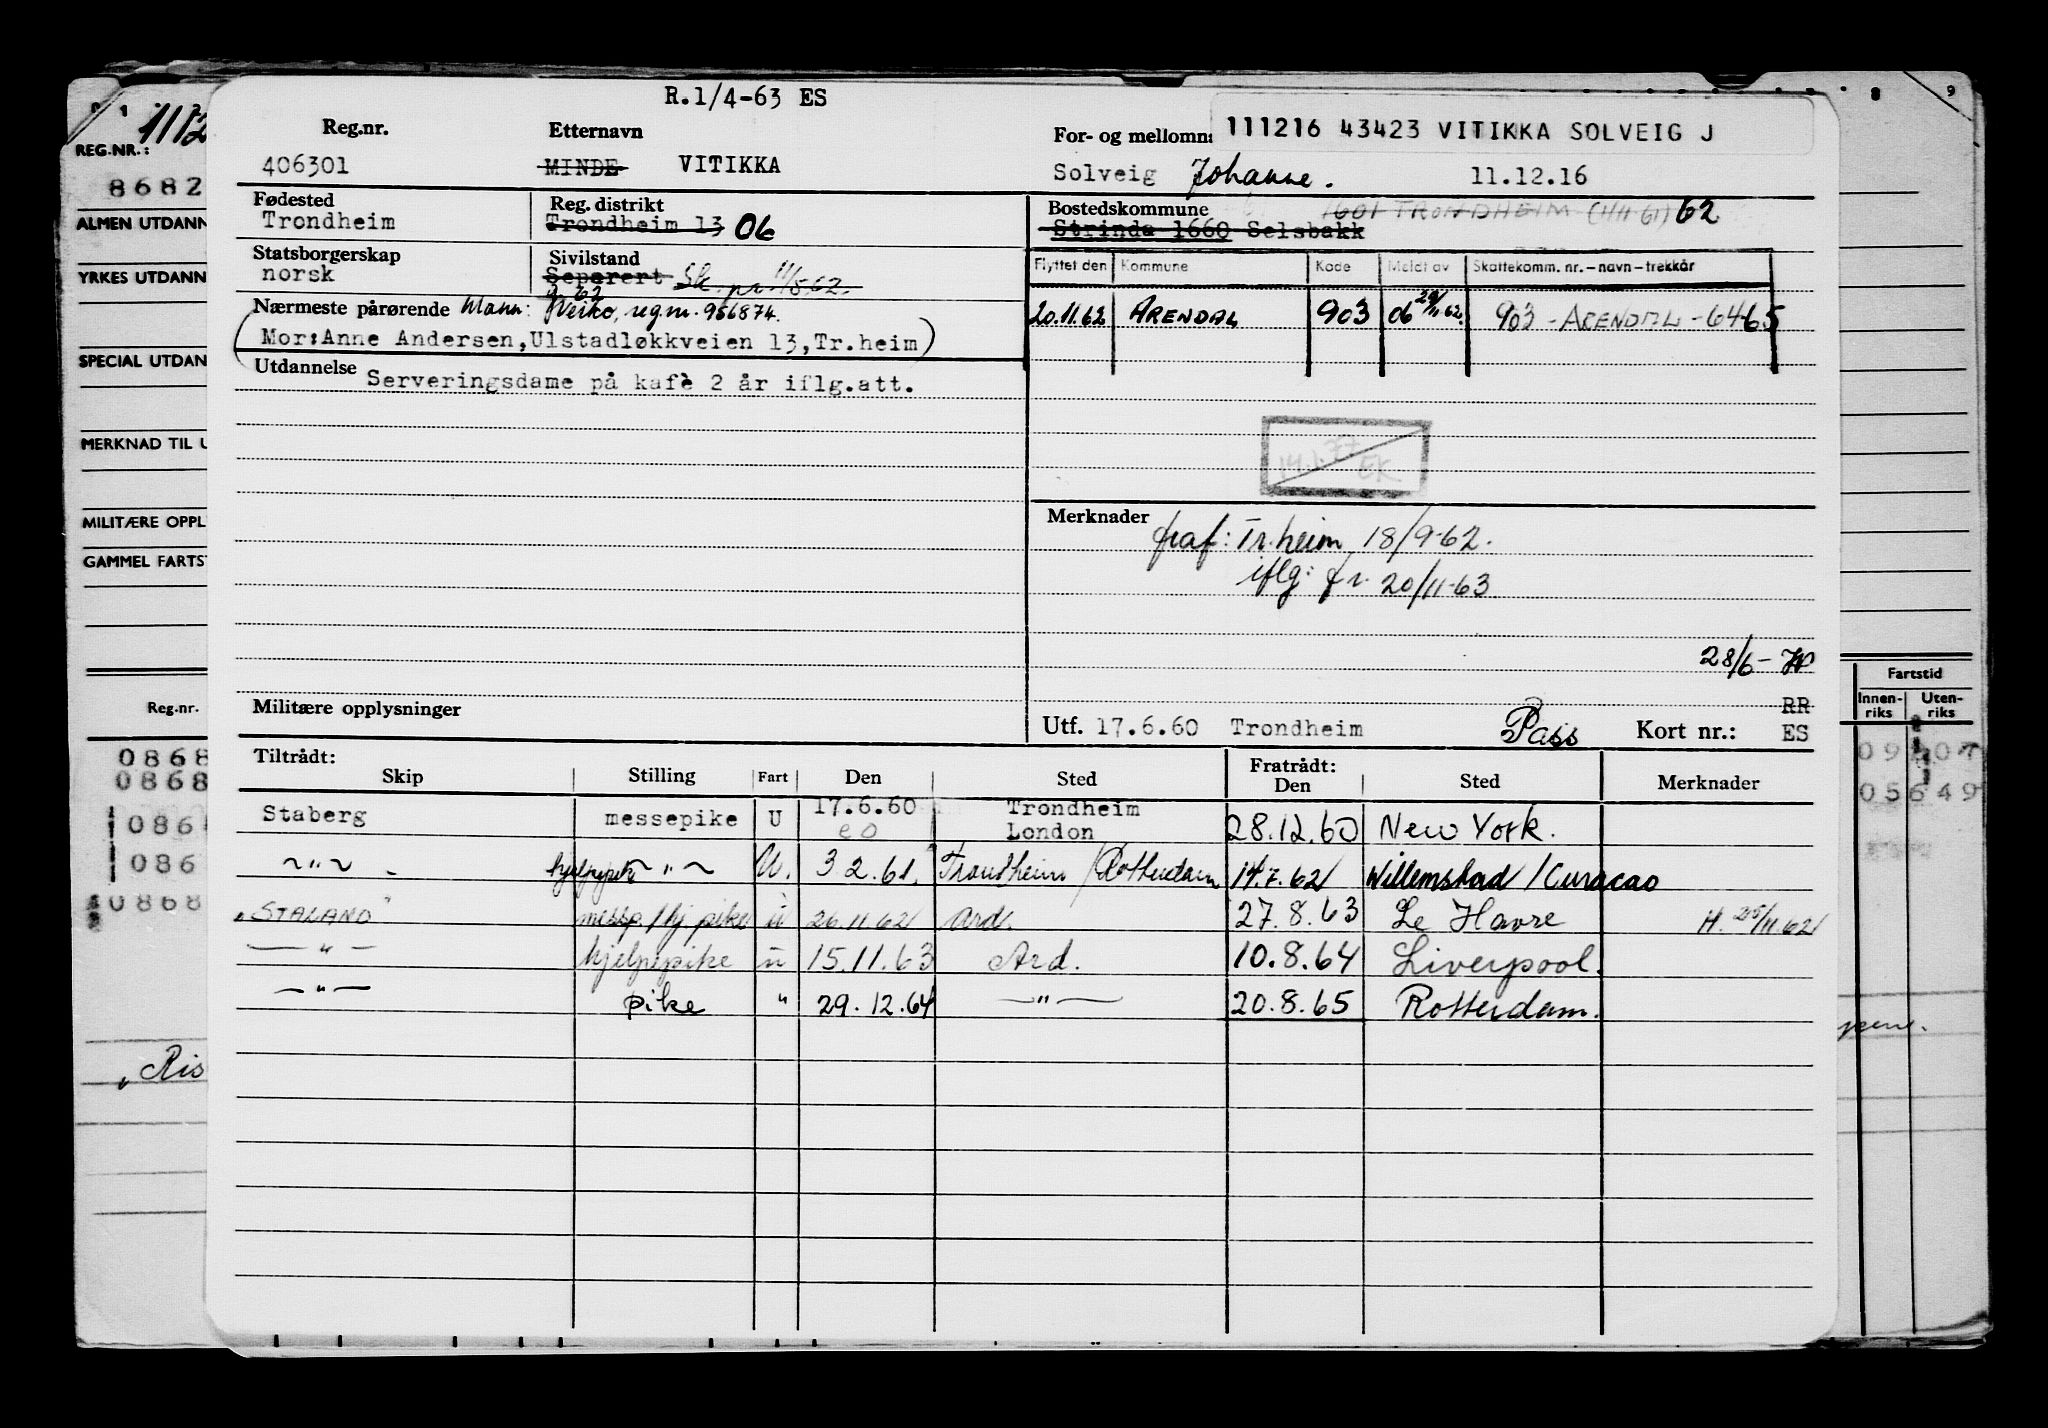 R.1/4-63 ES
Reg.nr.
Etternavn
For- og mellomn
111216 43423 VITIKKA SOLVEIG J
406301
MINDE VITIKKA
Solveig Johanne.
11.12.16
Fødested
Trondheim
Reg. distrikt
Trondheim 13 06
Bostedskommune
1601 TRONDHEIM (1/11 61) 62
Strinda 1660 Selsbakk
Statsborgerskap
norsk
Sivilstand
Separert Sk. pr. 11/5 62.
g. 62
Flyttet den Kommune Kode Meldt av Skattekomm. nr. – navn – trekkår
20.11.62 ARENDAL 903 06 903 - ARENDAL - 64-65
Nærmeste pårørende Mann: Veiko, reg nr. 956874.
(Mor:Anne Andersen,Ulstadløkkveien 13,Tr.heim)
Utdannelse Serveringsdame på kafè 2 år iflg.att.
14.1.77
EK
Merknader
fraf: Tr.heim 18/9-62.
iflg: fr. 20/11-63
28/6-
RR
Militære opplysninger
Utf. 17.6.60 Trondheim
Pass
Kort nr.: ES
Tiltrådt:
Skip Stilling Fart Den Sted
Fratrådt:
Den Sted Merknader
Staberg messepike U 17.6.60 Trondheim
London 28.12.60 New York.
~"~ - hjelpepike ~"~ U. 3.2.61. Trondheim / Rotterdam 14.7.62 Willemstad / Curacao
"STALAND" messp./hj.pike u 26.11.62 Ard. 27.8.63 Le Havre H. 20/11.62
—"— hjelpepike u 15.11.63 Ard. 10.8.64 Liverpool.
—"— pike " 29.12.64 —"— 20.8.65 Rotterdam.
REG.NR.:
8682
ALMEN UTDANN
YRKES UTDANN
SPECIAL UTDAN
MERKNAD TIL U
MILITÆRE OPPL
GAMMEL FARTS
Reg.nr.
0868
0868
086
086
0868
"Ris
8 9
Fartstid
Innen-
riks
Uten-
riks